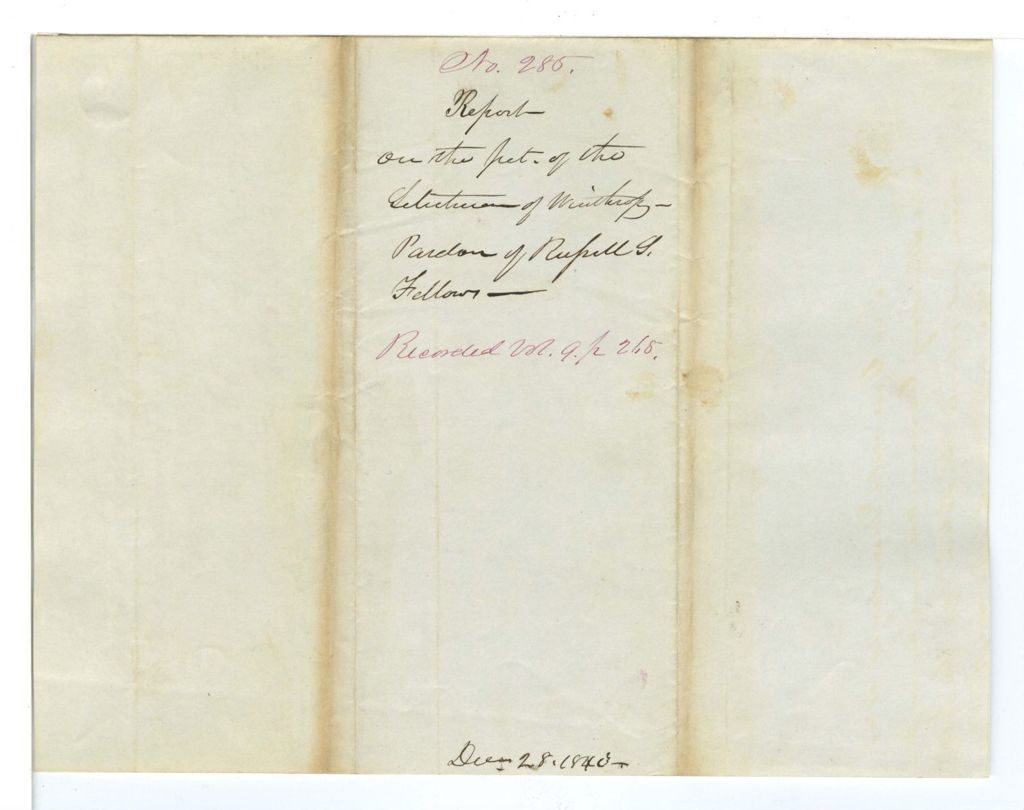 No. 285.
Report
on the pet. of the
Selectmen of Winthrop—
Pardon of Russell S.
Fellows—
Recorded Vol. 9. p 265.
Decr 28. 1843—